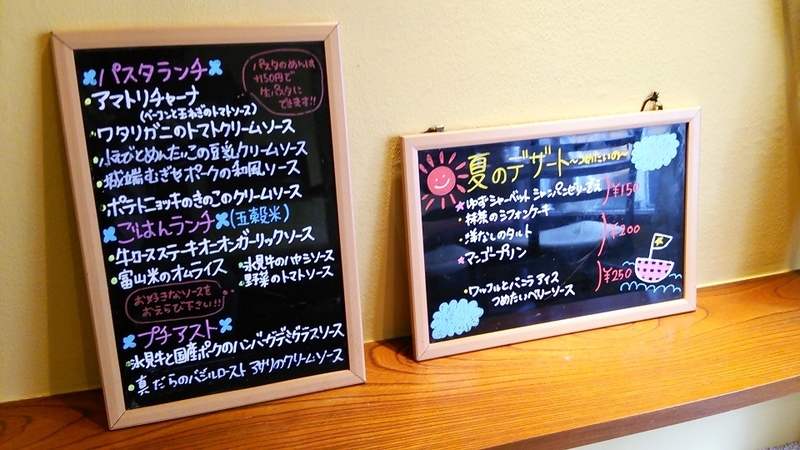 パスタランチ
パスタのめんは
+150円で
生パスタに
できます!!
アマトリチャーナ
(ベーコンと玉ねぎのトマトソース)
ワタリガニのトマトクリームソース
小えびとめんたいこの豆乳クリームソース
城端むぎやポークの和風ソース
ポテトニョッキのきのこのクリームソース
ごはんランチ(五穀米)
牛ロースステーキオニオンガーリックソース
富山米のオムライス
氷見牛のハヤシソース
野菜のトマトソース
お好きなソースを
おえらび下さい!!
プチアスト
氷見牛と国産ポークのハンバーグデミグラスソース
真だらのバジルロースト アサリのクリームソース
夏のデザート~つめたいの~
ゆずシャーベット シャンパンゼリーぞえ
¥150
抹茶のシフォンケーキ
洋なしのタルト
¥200
マンゴープリン
ワッフルとバニラアイス
つめたいベリーソース
¥250